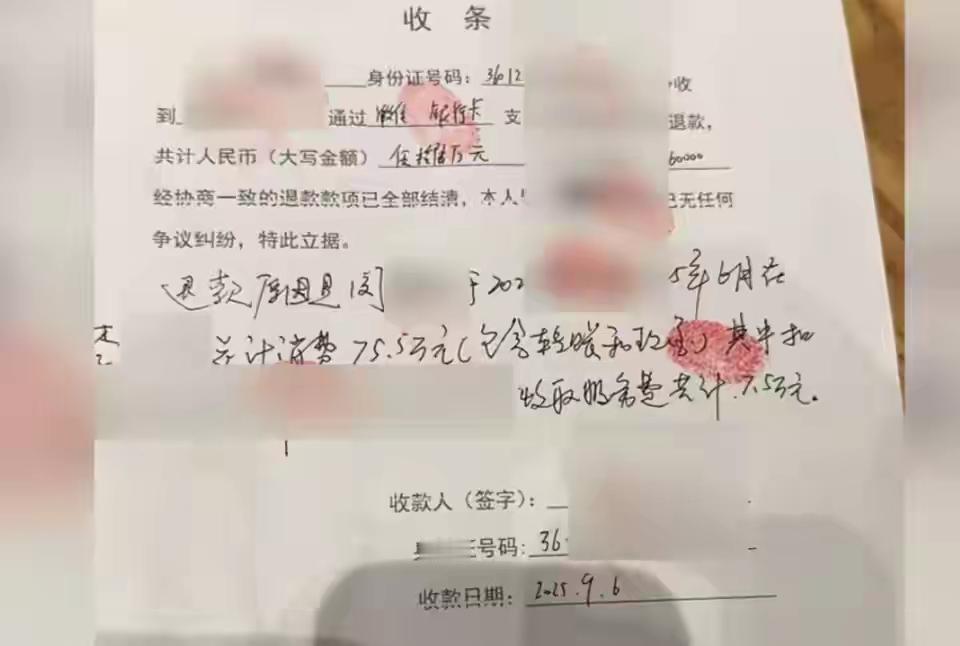 收 条
身份证号码：3612 收
到 通过 微信 银行卡 支 退款，
共计人民币（大写金额） 万元 60000
经协商一致的退款款项已全部结清，本人 已无任何
争议纠纷，特此立据。
退款原因是因 于202 5年6月在
共计消费75.5万元（包含 和 ）其中扣
收取服务费共计7.5万元。
收款人（签字）：
证号码：36
收款日期：2025.9.6